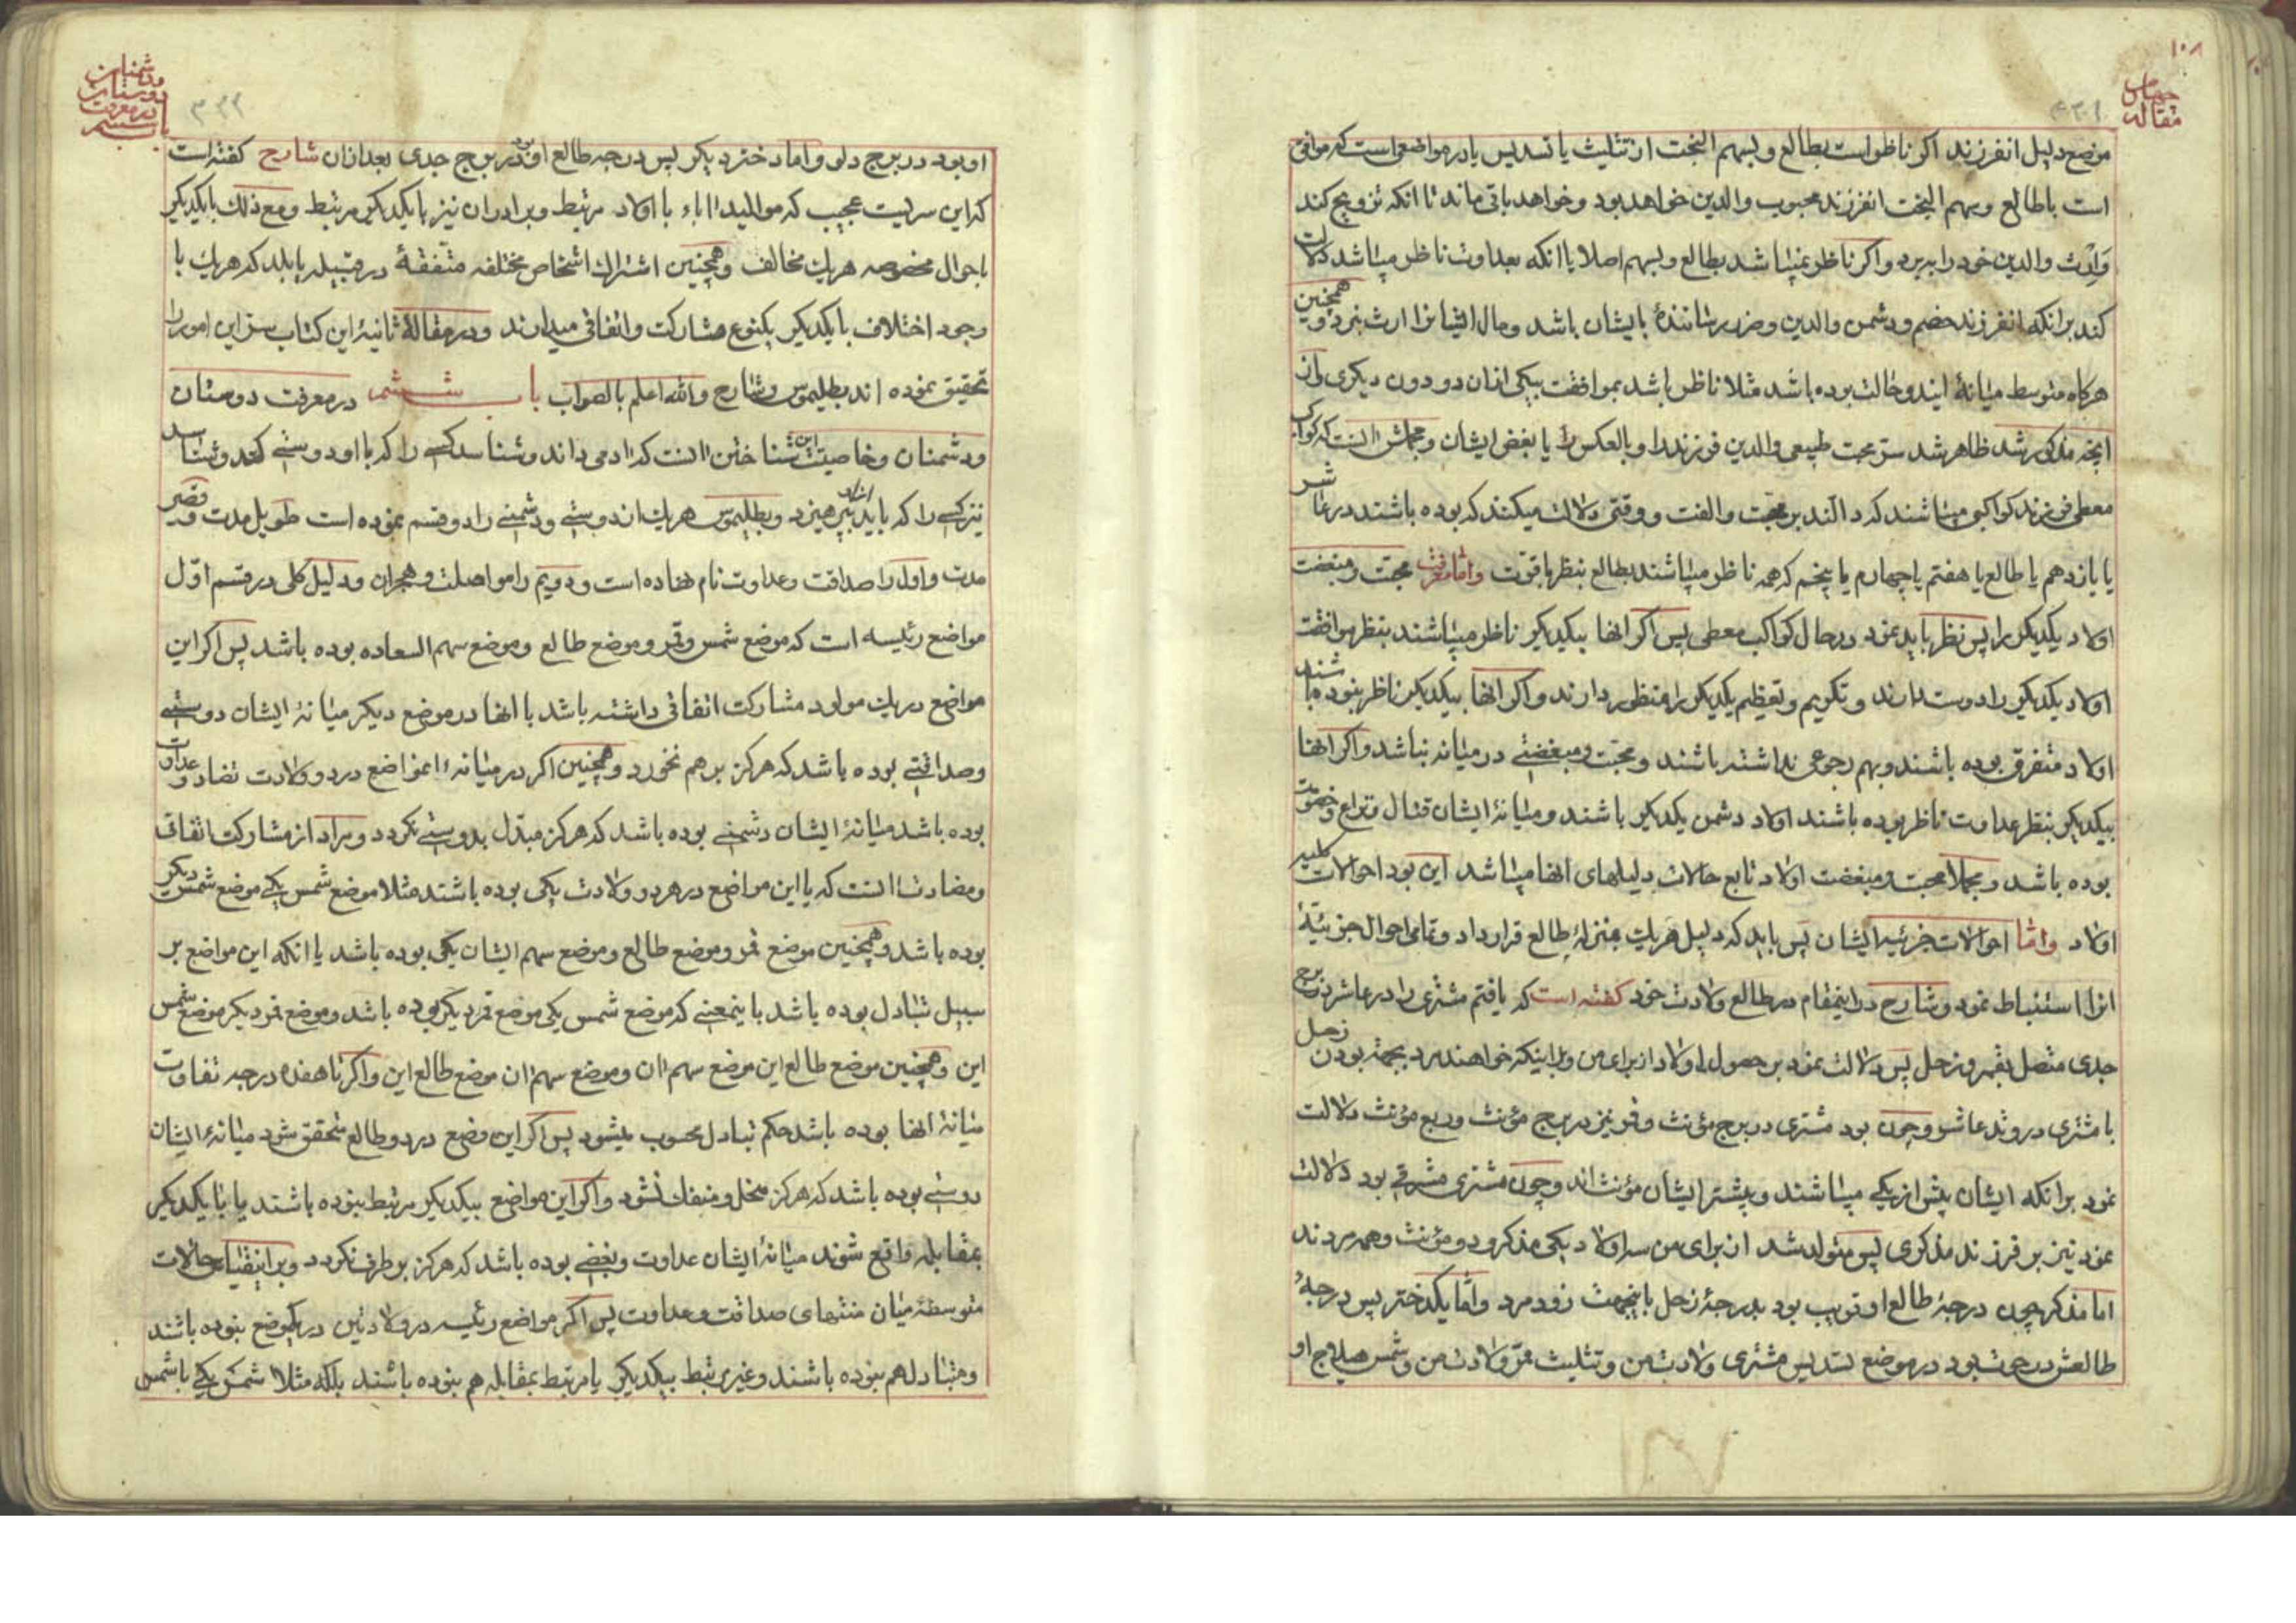 ۱۰۸
مقاله
چهارم
۴۳۱
موضع دلیل انفرزند اکر ناظر است بطالع و بسهم البخت از تثلیث یا تسدیس یا در مواضعی است که موافق
است باطالع و سهم البخت انفرزند محبوب والدین خواهد بود و خواهد باقی ماند تا انکه تزویج کند
وارث والدین خود را ببرد و اکر ناظر نمیباشد بطالع و بسهم اصلا یا انکه بعداوت ناظر میباشد دلالت
کند بر انکه انفرزند خصم و دشمن والدین و ضرر رسانندهٔ بایشان باشد و مال ایشانرا ارث نبرد و همچنین
هرکاه متوسط میانهٔ ایندو حالت بوده باشد مثلا ناظر باشد بموافقت بیکی از ان دو دون دیکری و از
انچه مذکور شد ظاهر شد سر محبت طبیعی والدین فرزند را و بالعکس را یا بغض ایشان و مجملش انست که کواکب
معطی فرزند کواکبی میباشند که دالند بر محبت و الفت و وقتی دلالت میکنند که بوده باشند در عاشر
یا یازدهم یا طالع یا هفتم یا چهارم یا پنجم که همه ناظر میباشند بطالع بنظر باقوت و اما معرفت محبت و مبغضت
اولاد یکدیکر را پس نظر باید نمود در حال کواکب معطی پس اکر انها بیکدیکر ناظر میباشند بنظر موافقت
اولاد یکدیکر را دوست دارند و تکریم و تعظیم یکدیکر را منظور دارند و اکر انها بیکدیکر ناظر نبوده باشند
اولاد متفرق بوده باشند و بهم رجوعی نداشته باشند و محبت و مبغضتی در میانه نباشد و اکر انها
بیکدیکر بنظر عداوت ناظر بوده باشند اولاد دشمن یکدیکر باشند و میانهٔ ایشان قتال و نزاع و خصومت
بوده باشد و مجملا محبت و مبغضت اولاد تابع حالات دلیلهای انها میباشد این بود احوالات کلیه
اولاد و اما احوالات جزئیه ایشان پس باید که دلیل هریک بمنزلهٔ طالع قرار داد و تمامی احوال جزئیهٔ
انرا استنباط نمود و شارح در اینمقام در طالع ولادت خود کفته است که یافتم مشتری را در عاشر در برج
جدی متصل بقمر و زحل پس دلالت نمود بر حصول اولاد از برای من و بر اینکه خواهند مرد بجهة بودن زحل
با مشتری در وتد عاشر و چون بود مشتری در برج مؤنث و قمر نیز در برج مؤنث و ربع مؤنث دلالت
نمود بر انکه ایشان بیش از یکی میباشند و بیشتر ایشان مؤنث اند و چون مشتری مشرقی بود دلالت
نمود نیز بر فرزند مذکری پس متولد شد از برای من سه اولاد یکی مذکر و دو مؤنث و همه مردند
اما مذکر چون درجهٔ طالع او قریب بود بدرجهٔ زحل باینجهت زود مرد و اما یکدختر پس درجهٔ
طالعش در حوت بود در موضع تسدیس مشتری ولادت من و تثلیث قمر ولادت من و شمس هیلاج او
باب ششم
در معرفت
دوستان
و دشمنان
۴۳۲
او بود در برج دلو و اما دختر دیکر پس درجه طالع او بود در برج جدی بعد از ان شارح کفته است
که این سریست عجیب که موالید اباء با اولاد مرتبط و برادران نیز با یکدیکر مرتبط و مع ذلک با یکدیکر
باحوال مخصوصه هریک مخالف و همچنین اشتراک اشخاص مختلفه متفقهٔ در قبیله یا بلد که هریک با
وجود اختلاف با یکدیکر بکنوع مشارکت و اتفاقی میدارند و در مقالهٔ ثانیهٔ این کتاب سر این امور را
تحقیق نموده اند بطلیموس و شارح والله اعلم بالصواب باب ششم در معرفت دوستان
و دشمنان و خاصیت این شناختن انست که ادمی داند و شناسد کسی را که با او دوستی کند و شناسد
نیز کسی را که باید از او بپرهیزد و بطلیموس هریک از دوستی و دشمنی را دو قسم نموده است طویل مدت و قصیر
مدت و اول را صداقت و عداوت نام نهاده است و دویم را مواصلت و هجران و دلیل کلی در قسم اول
مواضع رئیسه است که موضع شمس و قمر و موضع طالع و موضع سهم السعاده بوده باشد پس اکر این
مواضع در یک مولود مشارکت اتفاقی داشته باشد با انها در موضع دیکر میانهٔ ایشان دوستی
و صداقتی بوده باشد که هرکز بر هم نخورد و همچنین اکر در میانهٔ انمواضع در دو ولادت تضاد و عداوت
بوده باشد میانهٔ ایشان دشمنی بوده باشد که هرکز مبدل بدوستی نکردد و مراد از مشارکت اتفاقی
و مضادت انست که یا این مواضع در هر دو ولادت یکی بوده باشند مثلا موضع شمس یکی موضع شمس دیکر
بوده باشد و همچنین موضع قمر و موضع طالع و موضع سهم ایشان یکی بوده باشد یا انکه این مواضع بر
سبیل تبادل بوده باشد باینمعنی که موضع شمس یکی موضع قمر دیکر بوده باشد و موضع قمر دیکر موضع شمس
این و همچنین موضع طالع این موضع سهم ان و موضع سهم ان موضع طالع این و اکر تا هفده درجه تفاوت
میانهٔ انها بوده باشد حکم تبادل محسوب میشود پس اکر این وضع در دو طالع متحقق شود میانهٔ ایشان
دوستی بوده باشد که هرکز مختل و منفک نشود و اکر این مواضع بیکدیکر مرتبط نبوده باشند یا با یکدیکر
بمقابله واقع شوند میانهٔ ایشان عداوت و بغضی بوده باشد که هرکز برطرف نکردد و بر اینقیاس حالات
متوسطهٔ میان منتهای صداقت و عداوت پس اکر مواضع رئیسه در ولادتین در یکموضع نبوده باشند
و متبادل هم نبوده باشند و غیر مرتبط بیکدیکر یا مرتبط بمقابله هم نبوده باشند بلکه مثلا شمس یکی با شمس